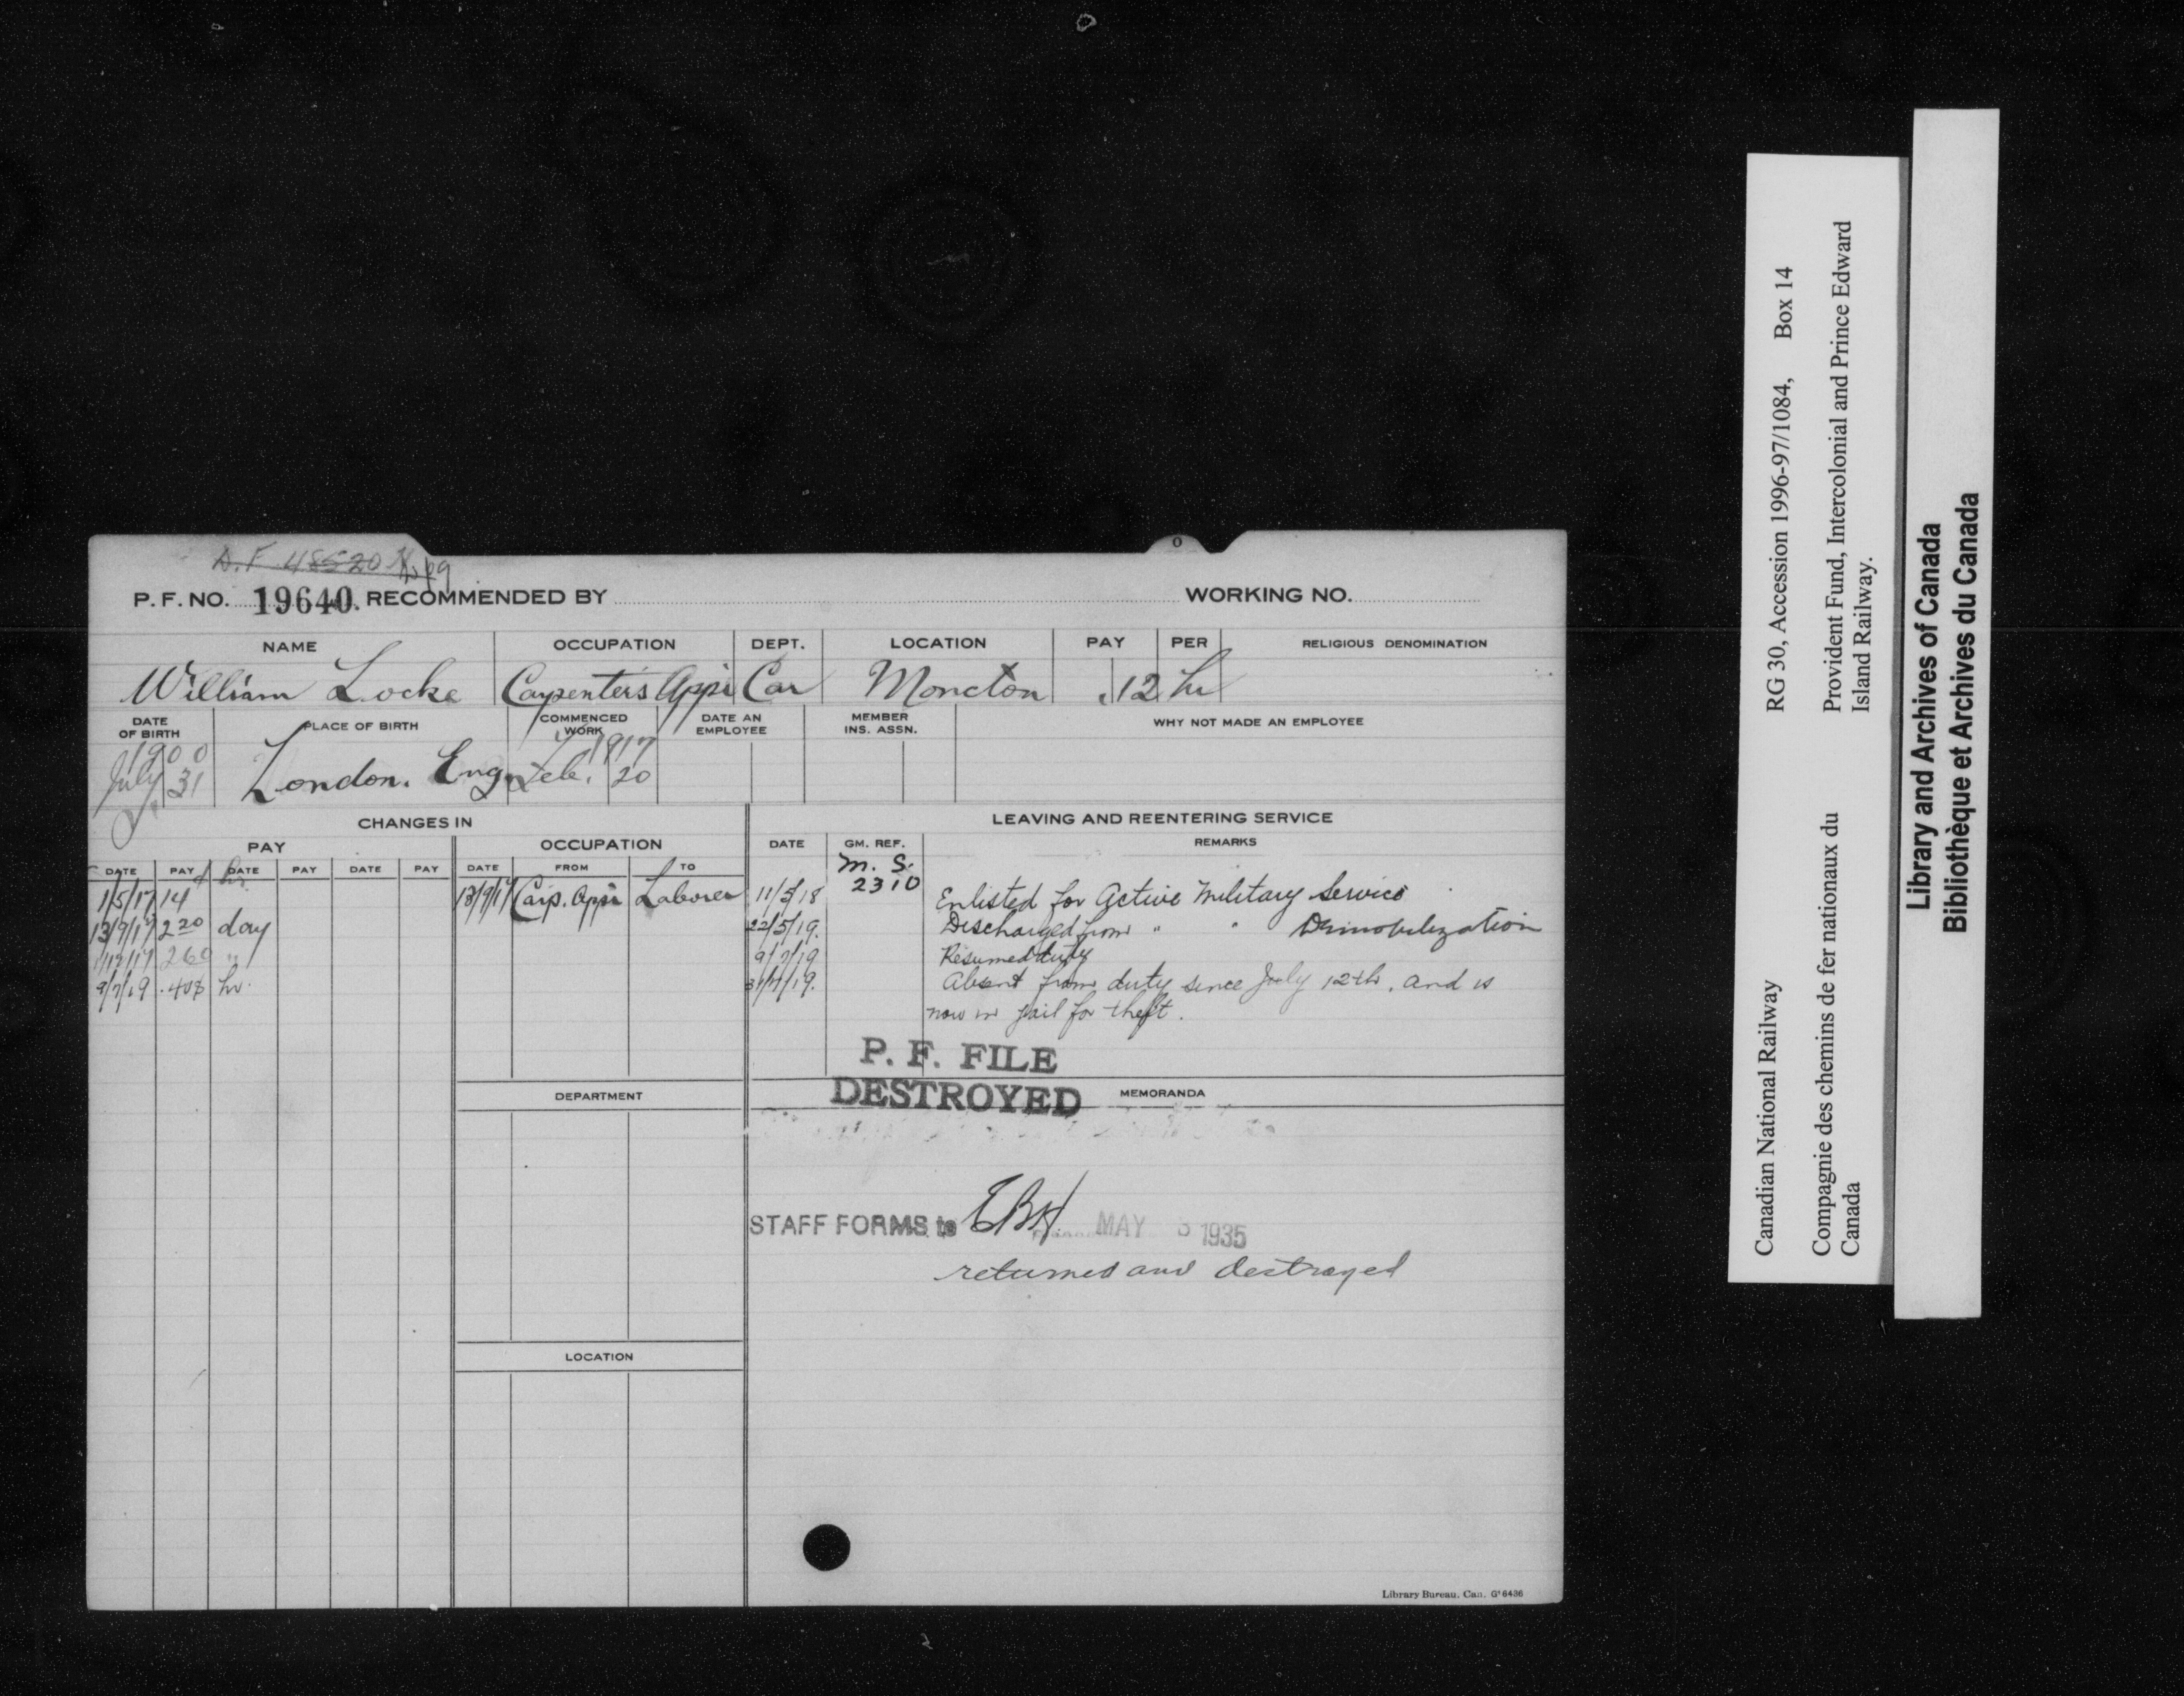 D.F. 48520
P. F. NO. 19640. RECOMMENDED BY WORKING NO.
NAME OCCUPATION DEPT. LOCATION PAY PER RELIGIOUS DENOMINATION
William Locke Carpenter's Appr Car Moncton .12 hr
DATE OF BIRTH PLACE OF BIRTH COMMENCED WORK DATE AN EMPLOYEE MEMBER INS. ASSN. WHY NOT MADE AN EMPLOYEE
1900 1917
July 31 London. Eng. Feb. 20
CHANGES IN LEAVING AND REENTERING SERVICE
PAY OCCUPATION DATE GM. REF. REMARKS
DATE PAY DATE PAY DATE PAY DATE FROM TO
M. S.
2310
1/5/17 14 hr. 13/9/17 Carp. Appr Laborer 11/5/18 Enlisted for Active Military Service
13/9/17 2 20 day 22/5/19. Discharged from " " Demobilization
1/12/17 2 60 " 9/7/19 Resumed duty
9/7/19 .40 hr. 31/7/19. Absent from duty since July 12th. and is
now in jail for theft.
P. F. FILE
DESTROYED
DEPARTMENT MEMORANDA
STAFF FORMS to EBH MAY 1935
returned and destroyed
LOCATION
Library Bureau, Can. G 6436
Canadian National Railway RG 30, Accession 1996-97/1084, Box 14
Compagnie des chemins de fer nationaux du Provident Fund, Intercolonial and Prince Edward
Canada Island Railway.
Library and Archives of Canada
Bibliothèque et Archives du Canada